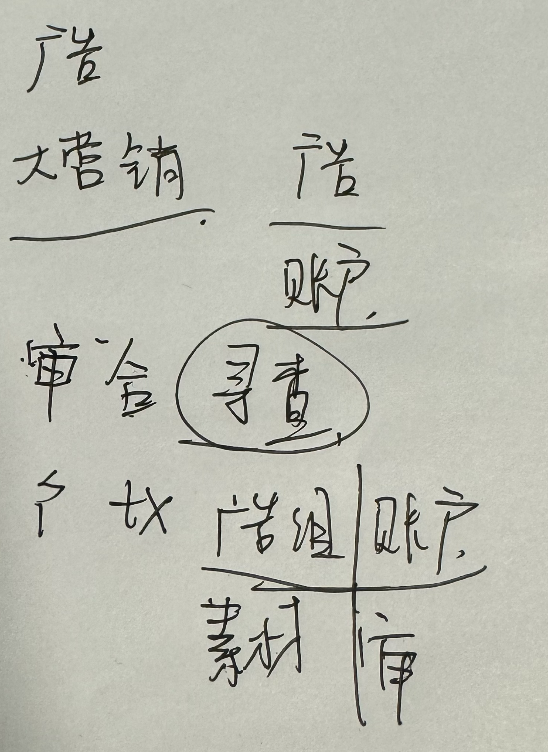 广告
大营销 广告
账户
审 合 寻查
广告组 账户
素材 审